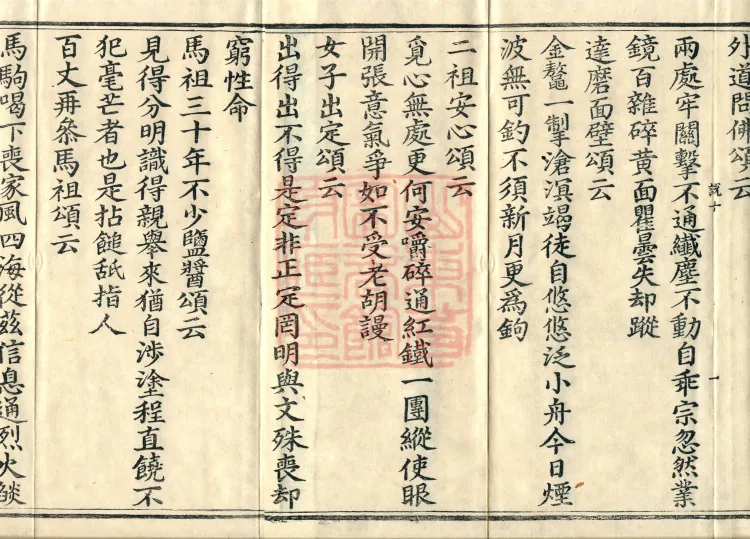 外道問佛頌云
兩處牢關擊不通纖塵不動自乖宗忽然業
鏡百雜碎黃面瞿曇失却蹤
達磨面壁頌云
金鼇一掣滄溟竭徒自悠悠泛小舟今日煙
波無可釣不須新月更爲鉤
二祖安心頌云
覓心無處更何安嚼碎通紅鐵一團縱使眼
開張意氣爭如不受老胡謾
女子出定頌云
出得出不得是定非正定罔明與文殊喪却
窮性命
馬祖三十年不少鹽醬頌云
見得分明識得親舉來猶自涉塗程直饒不
犯毫芒者也是拈鎚舐指人
百丈再叅馬祖頌云
馬駒喝下喪家風四海從茲信息通烈火燄